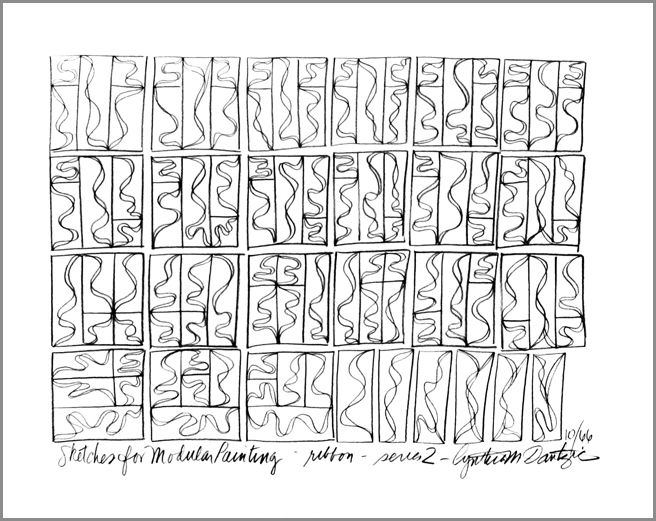 10/66
Sketches for Modular Painting - ribbon - series 2 - Cynthia M Dantzic